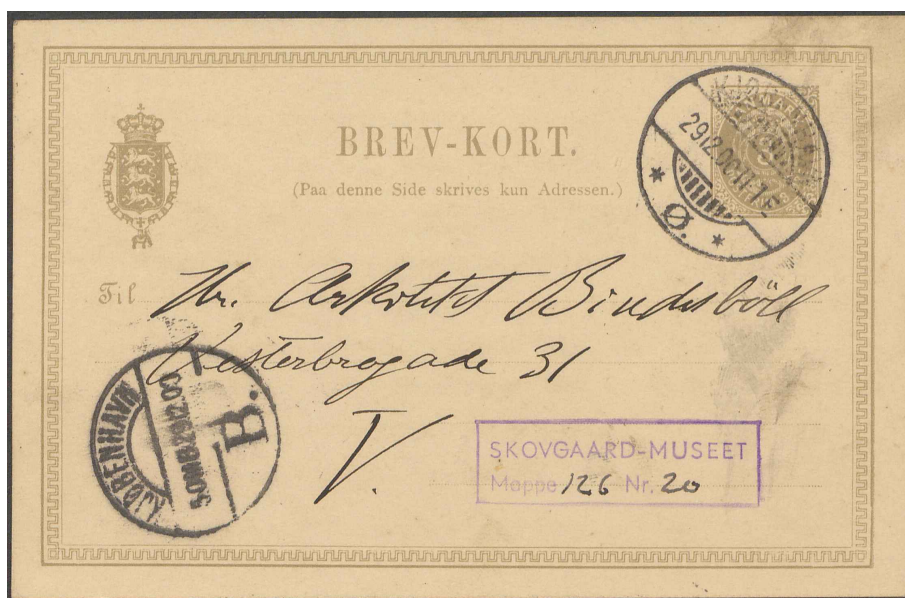 BREV-KORT.
(Paa denne Side skrives kun Adressen.)
29.12.00.11-12
Ø.
Til Hr. Arkitekt Bindesböll
Vesterbrogade 31
V.
KJØBENHAVN
5.OMB.29.12.00
B.
SKOVGAARD-MUSEET
Mappe 126 Nr. 20